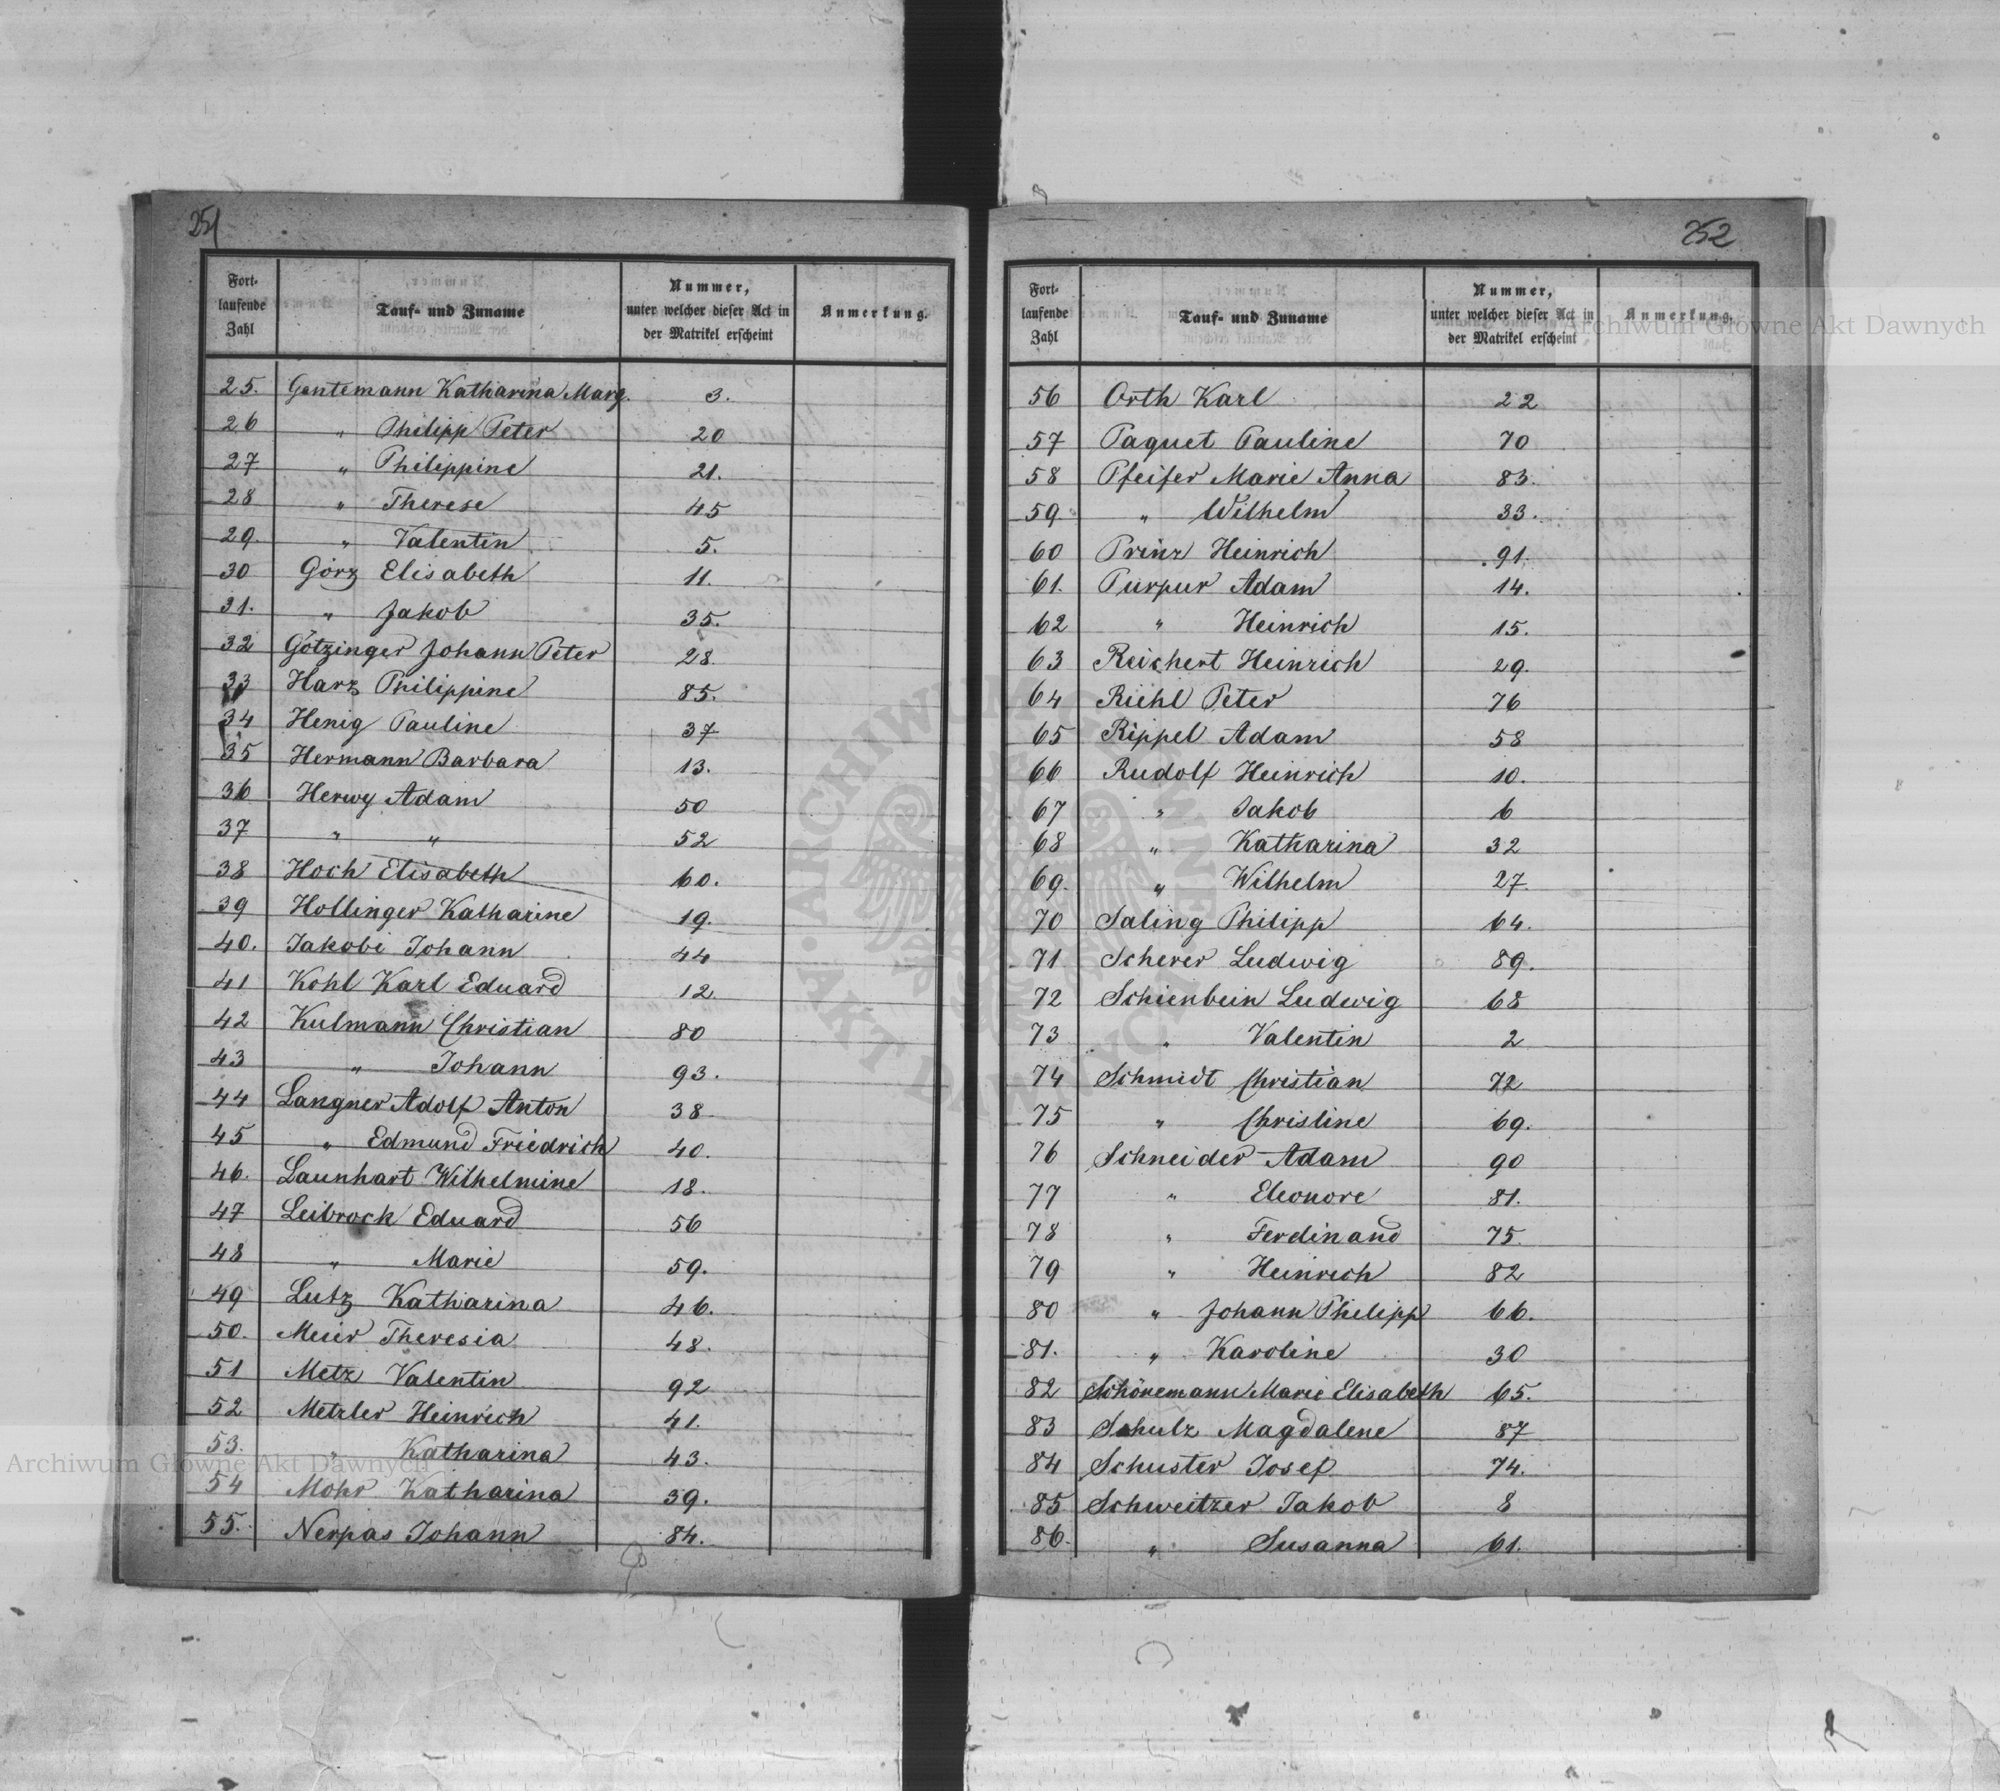 251
Fort-
laufende
Zahl
Tauf- und Zuname
Nummer,
unter welcher dieser Act in
der Matrikel erscheint
Anmerkung.
25. Gentemann Katharina Marg. 3.
26 " Philipp Peter 20
27 " Philippine 21.
28 " Therese 45
29. " Valentin 5.
30 Görz Elisabeth 11.
31. " Jakob 35.
32 Götzinger Johann Peter 28.
33 Harz Philippine 85.
34 Henig Pauline 37
35 Hermann Barbara 13.
36 Herwy Adam 50
37 " " 52
38 Hoch Elisabeth 60.
39 Hollinger Katharine 19.
40. Jakobi Johann 44
41 Kohl Karl Eduard 12.
42 Kulmann Christian 80
43 " Johann 93.
44 Langner Adolf Anton 38
45 " Edmund Friedrich 40.
46. Launhart Wilhelmine 18.
47 Leibrock Eduard 56
48 " Marie 59.
49 Lutz Katharina 46.
50. Meier Theresia 48.
51 Metz Valentin 92
52 Metzler Heinrich 41.
53. " Katharina 43.
54 Mohr Katharina 39.
55. Nerpas Johann 84.
252
Fort-
laufende
Zahl
Tauf- und Zuname
Nummer,
unter welcher dieser Act in
der Matrikel erscheint
Anmerkung.
56 Orth Karl 22
57 Paquet Pauline 70
58 Pfeifer Marie Anna 83.
59 " Wilhelm 33.
60 Prinz Heinrich 91.
61. Purpur Adam 14.
62 " Heinrich 15.
63 Reichert Heinrich 29.
64 Riehl Peter 76
65 Rippel Adam 58
66 Rudolf Heinrich 10.
67 " Jakob 6
68 " Katharina 32
69. " Wilhelm 27.
70 Saling Philipp 64.
71 Scherer Ludwig 89.
72 Schienbein Ludwig 68
73 " Valentin 2
74 Schmidt Christian 72
75 " Christine 69.
76 Schneider Adam 90
77 " Eleonore 81.
78 " Ferdinand 75.
79 " Heinrich 82
80 " Johann Philipp 66.
81. " Karoline 30
82 Schönemann Marie Elisabeth 65.
83 Schulz Magdalene 87
84 Schuster Josef 74.
85 Schweitzer Jakob 8
86. " Susanna 61.
Archiwum Główne Akt Dawnych
Archiwum Główne Akt Dawnych
ARCHIWUM GŁÓWNE AKT DAWNYCH